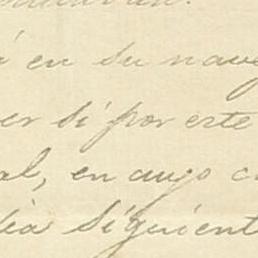 en su nave
er si por este
al, en cuyo c
dia siguient